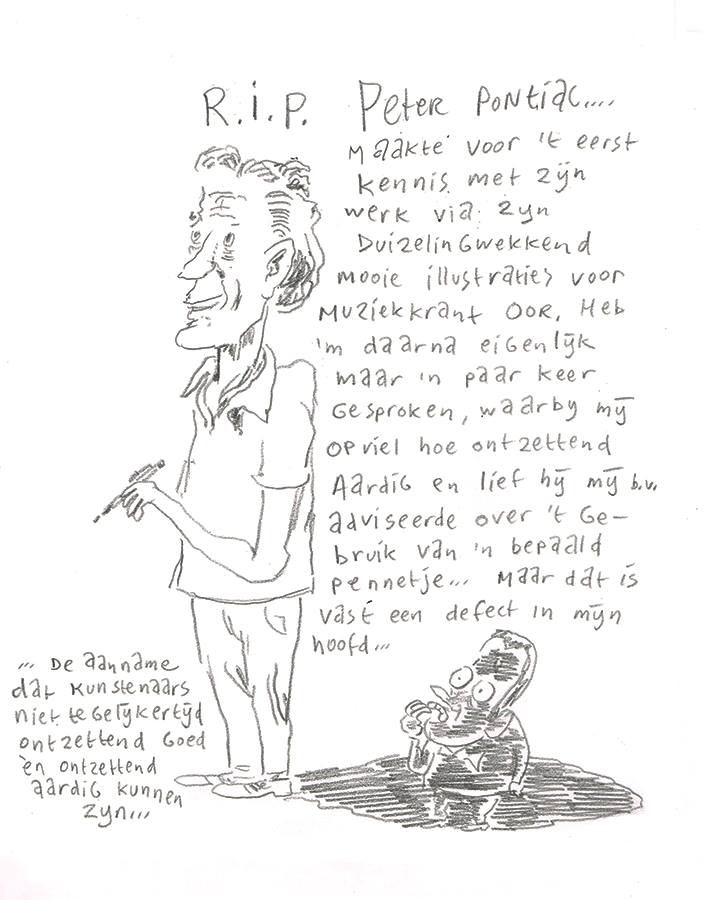 R.i.P. Peter Pontiac....
Maakte voor 't eerst
kennis met zijn
werk via zyn
Duizelingwekkend
mooie illustraties voor
Muziekkrant OOR, Heb
'm daarna eigenlijk
maar 'n paar keer
Gesproken, waarby mij
opviel hoe ontzettend
Aardig en lief hij mij b.v.
adviseerde over 't Ge-
bruik van 'n bepaald
pennetje... Maar dat is
vast een defect in mijn
hoofd...
... De aanname
dat kunstenaars
niet tegelijkertijd
ontzettend Goed
èn ontzettend
aardig kunnen
zyn...